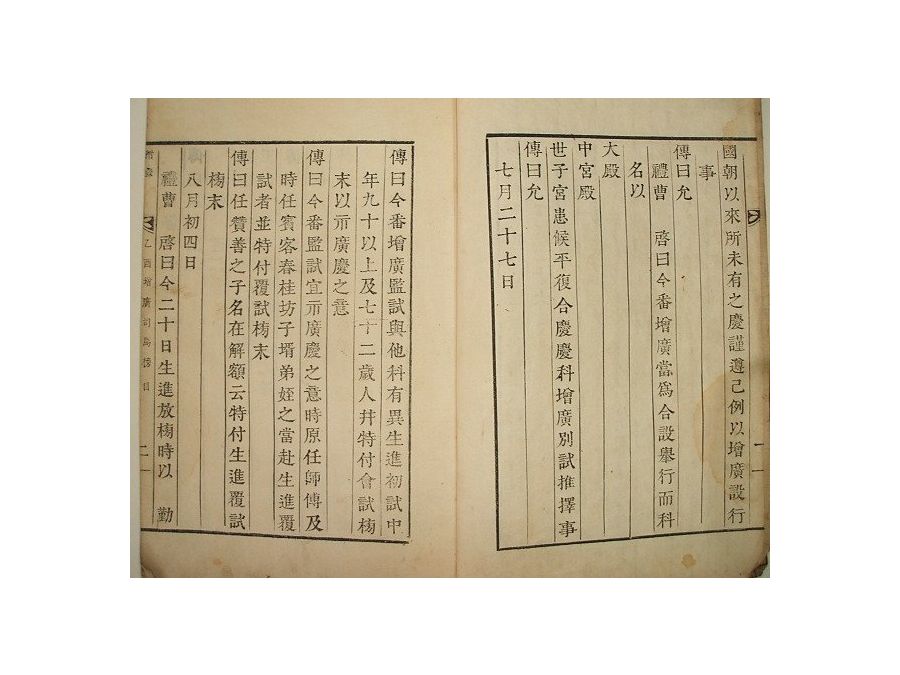 國朝以來所未有之慶謹遵己例以增廣設行
事
傳曰允
禮曹 啓曰今番增廣當爲合設舉行而科
名以
大殿
中宮殿
世子宮患候平復合慶慶科增廣別試推擇事
傳曰允
七月二十七日
傳曰今番增廣監試與他科有異生進初試中
年九十以上及七十二歲人幷特付會試榜
末以示廣慶之意
傳曰今番監試宜示廣慶之意時原任師傅及
時任賓客春桂坊子壻弟姪之當赴生進覆
試者並特付覆試榜末
傳曰任贊善之子名在解額云特付生進覆試
榜末
八月初四日
禮曹 啓曰今二十日生進放榜時以 勤
乙酉增廣司馬榜目 二